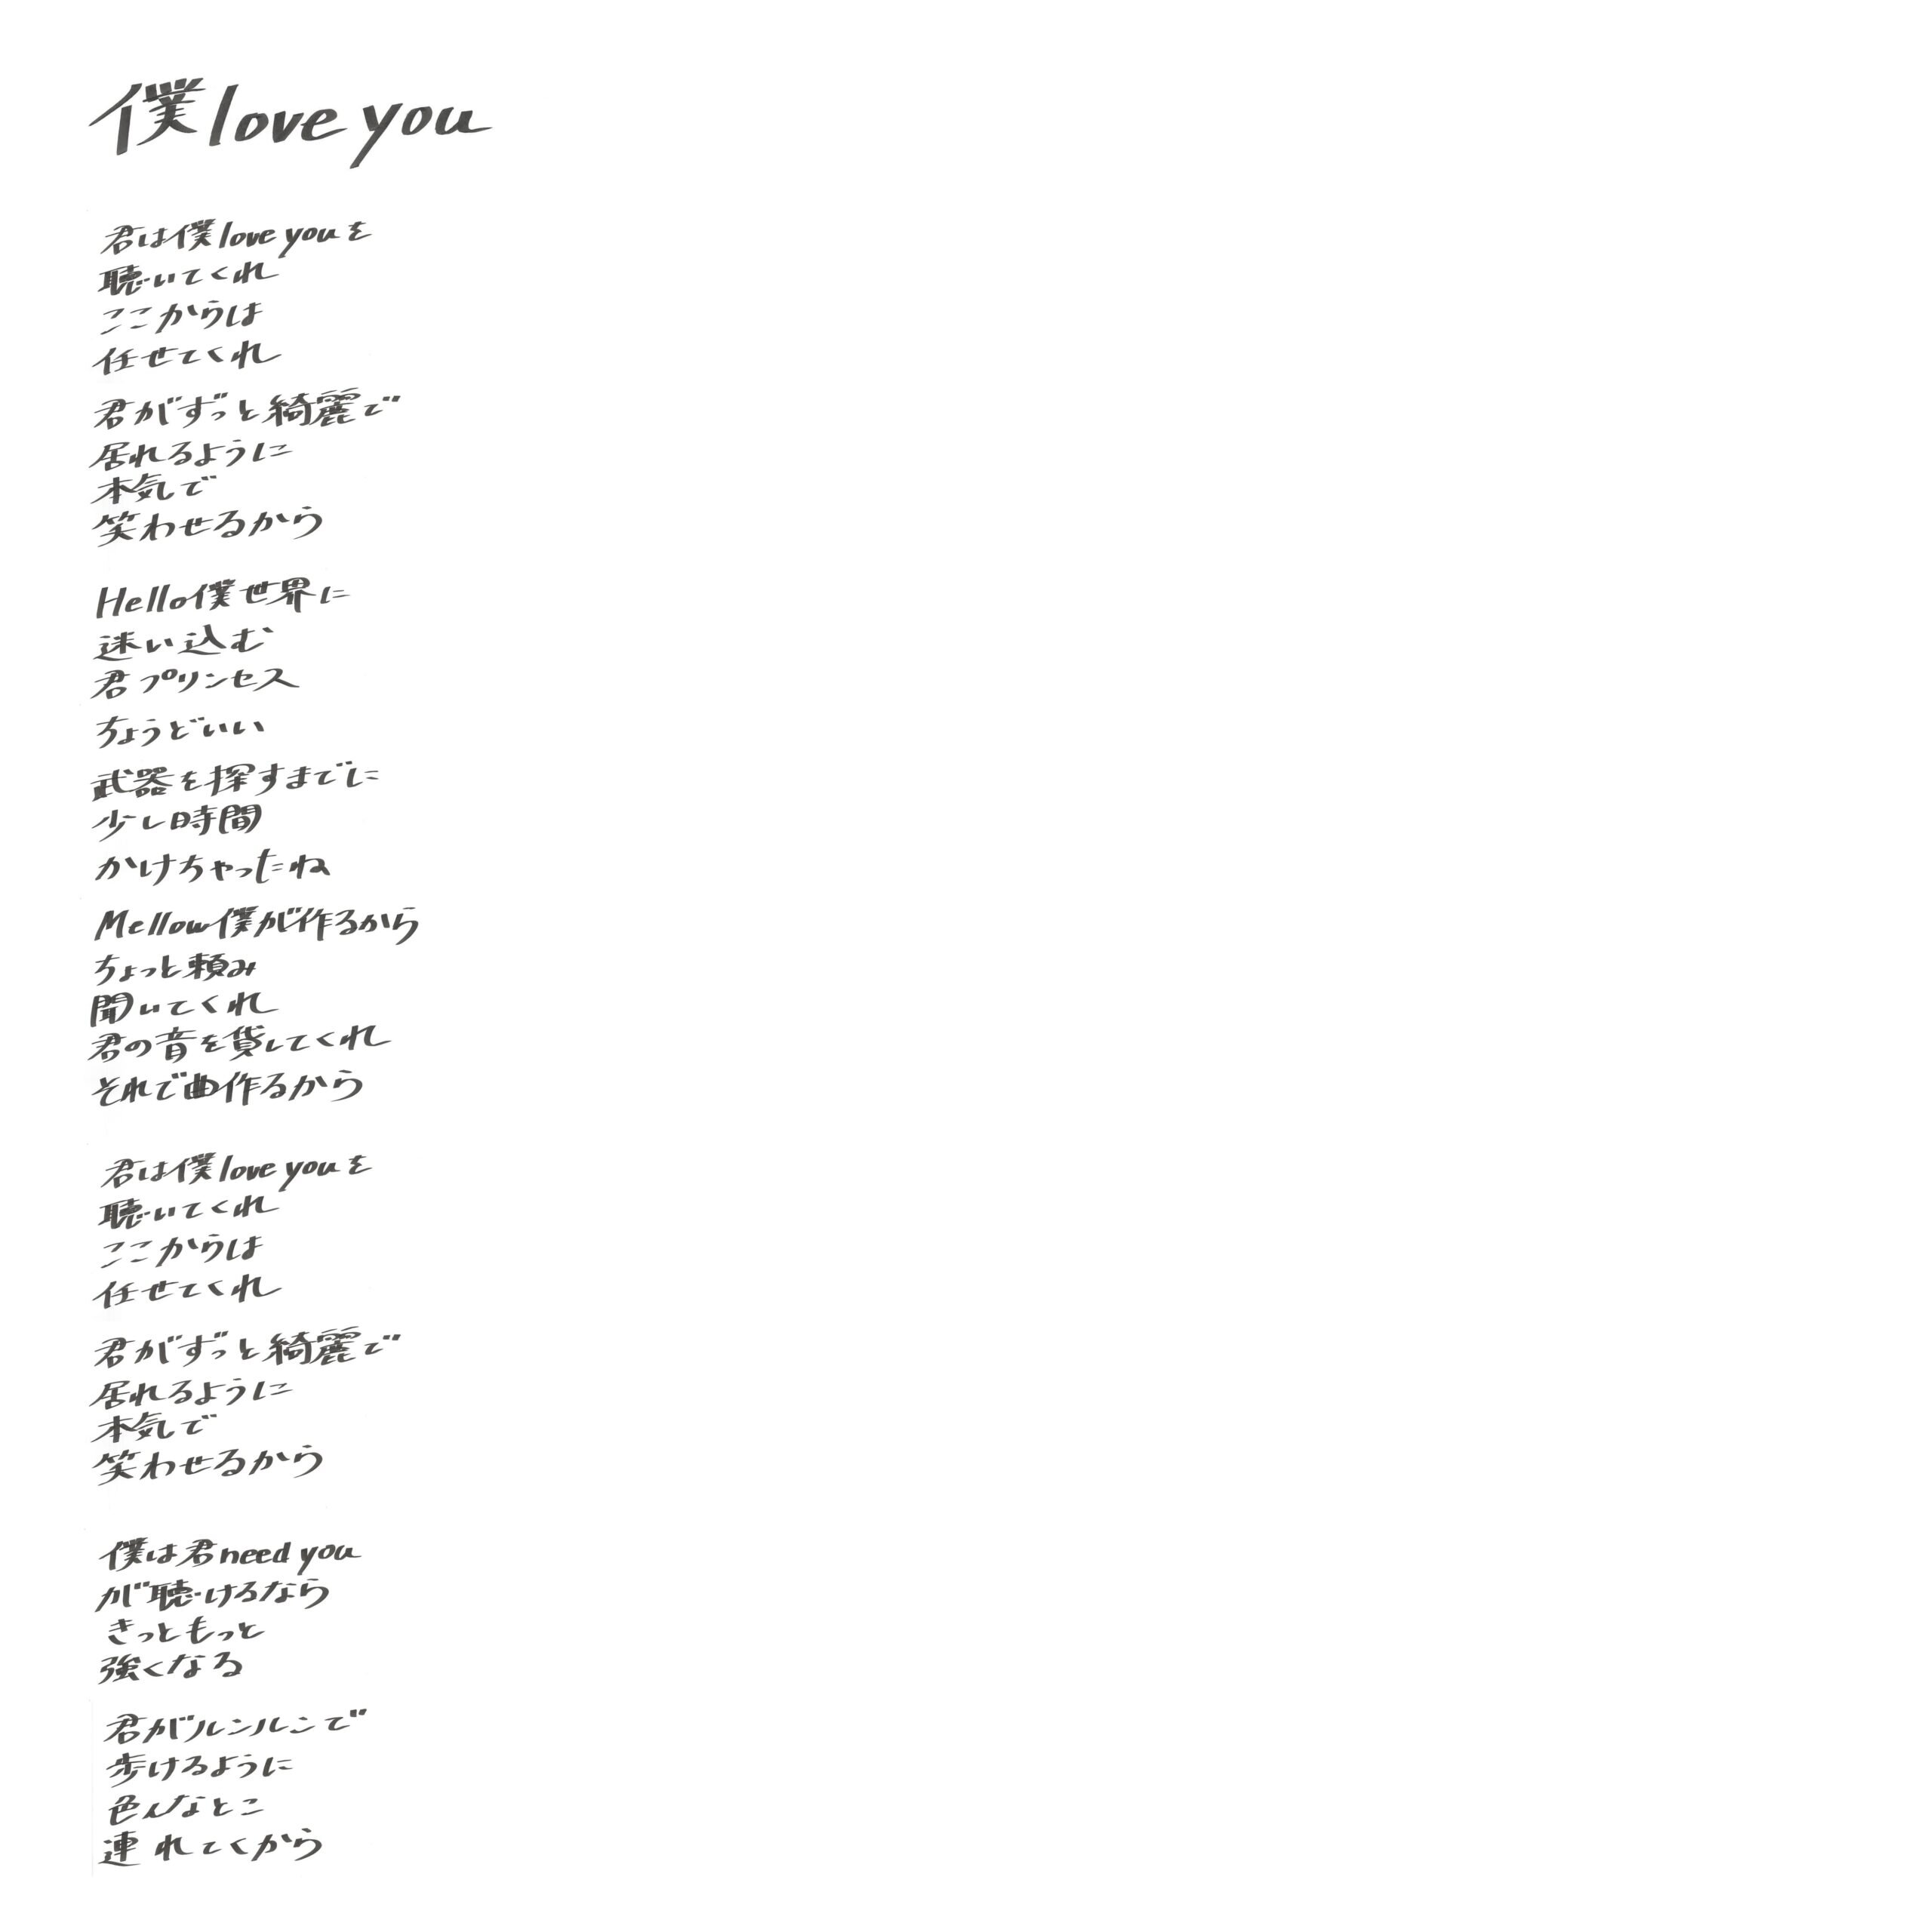 僕love you
君は僕love youを
聴いてくれ
ここからは
任せてくれ
君がずっと綺麗で
居れるように
本気で
笑わせるから
Hello僕世界に
迷い込む
君プリンセス
ちょうどいい
武器を探すまでに
少し時間
かけちゃったね
Mellow僕が作るから
ちょっと頼み
聞いてくれ
君の音を貸してくれ
それで曲作るから
君は僕love youを
聴いてくれ
ここからは
任せてくれ
君がずっと綺麗で
居れるように
本気で
笑わせるから
僕は君need you
が聴けるなら
きっともっと
強くなる
君がルンルンで
歩けるように
色んなとこ
連れてくから